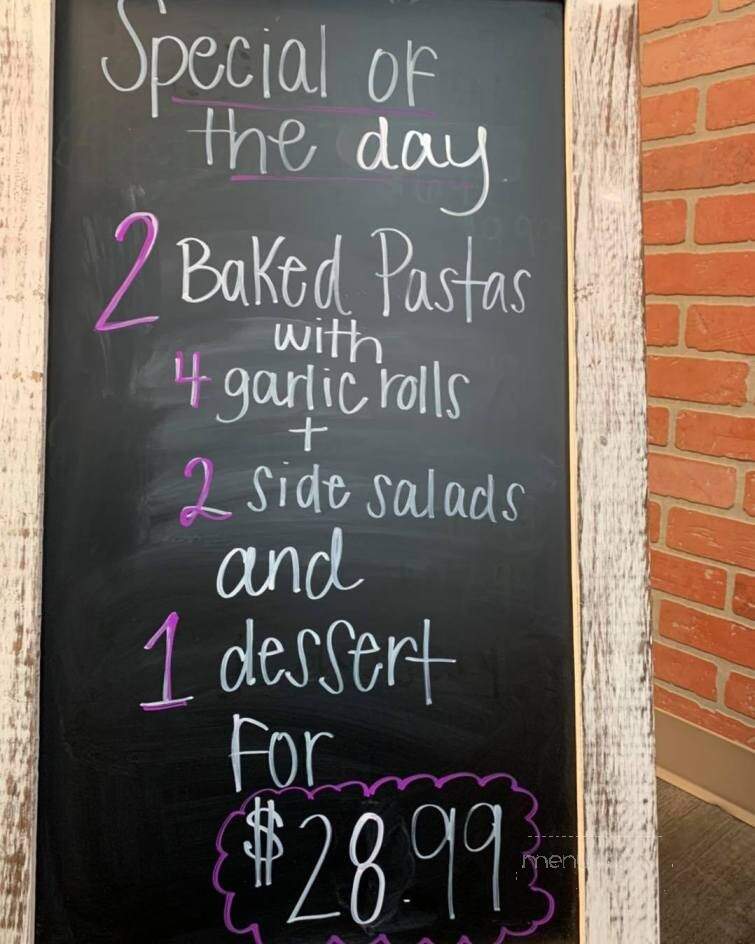 Special of
the day
2 Baked Pastas
with
4 garlic rolls
+
2 side salads
and
1 dessert
For
$28.99
men